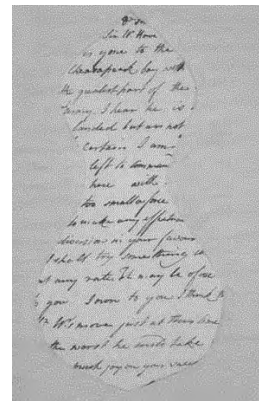 Sir W. Howe
is gone to the
Chesapeak bay with
the greatest part of the
army. I hear he is
landed but am not
certain. I am
left to command
here with
too small a force
to make any effectual
diversion in your favour
I shall try something
at any rate. It may be of use
to you. I own to you I think
Sir W's move just at this time
the worst he could take
much joy on your